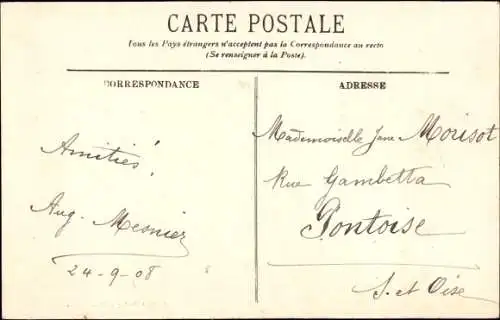 CARTE POSTALE
Tous les Pays étrangers n'acceptent pas la Correspondance au recto
(Se renseigner à la Poste).
CORRESPONDANCE
ADRESSE
Amitiés.
Aug. Mesnier
24-9-08
Mademoiselle Jane Morisot
Rue Gambetta
Pontoise
S. et Oise